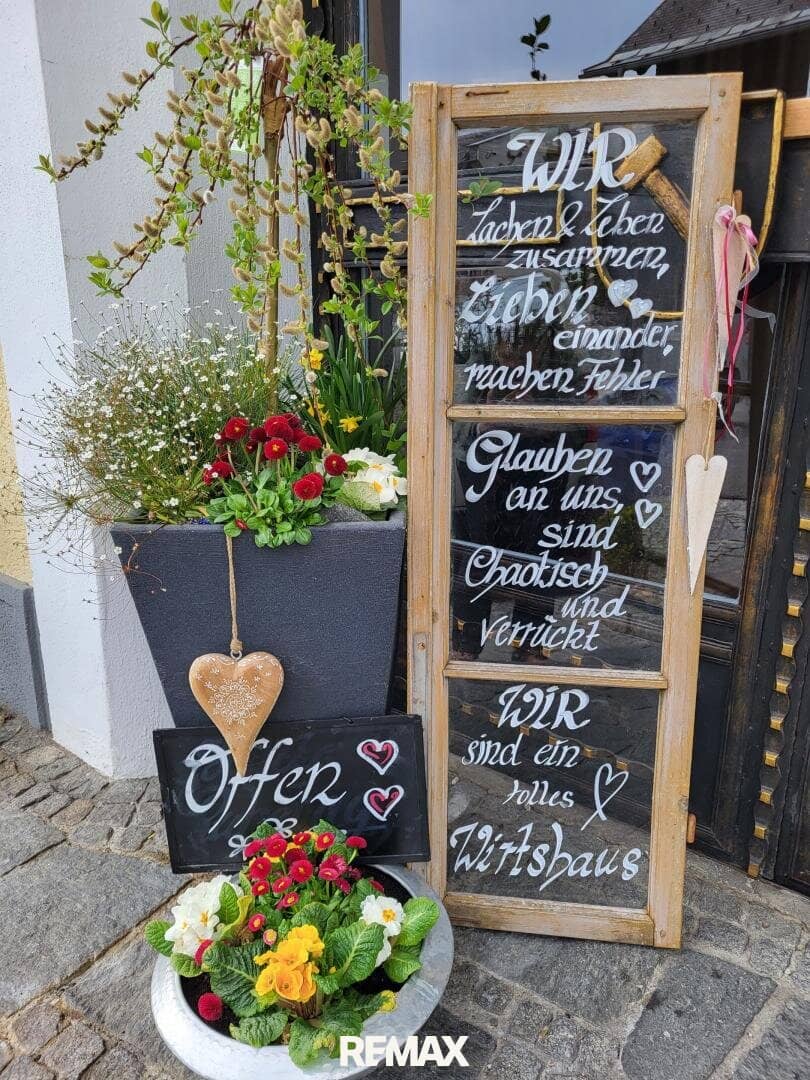 WIR
Lachen & Leben
zusammen,
Lieben
einander,
machen Fehler
Glauben
an uns,
sind
Chaotisch
und
verrückt
WIR
sind ein
tolles
Wirtshaus
Offen
REMAX